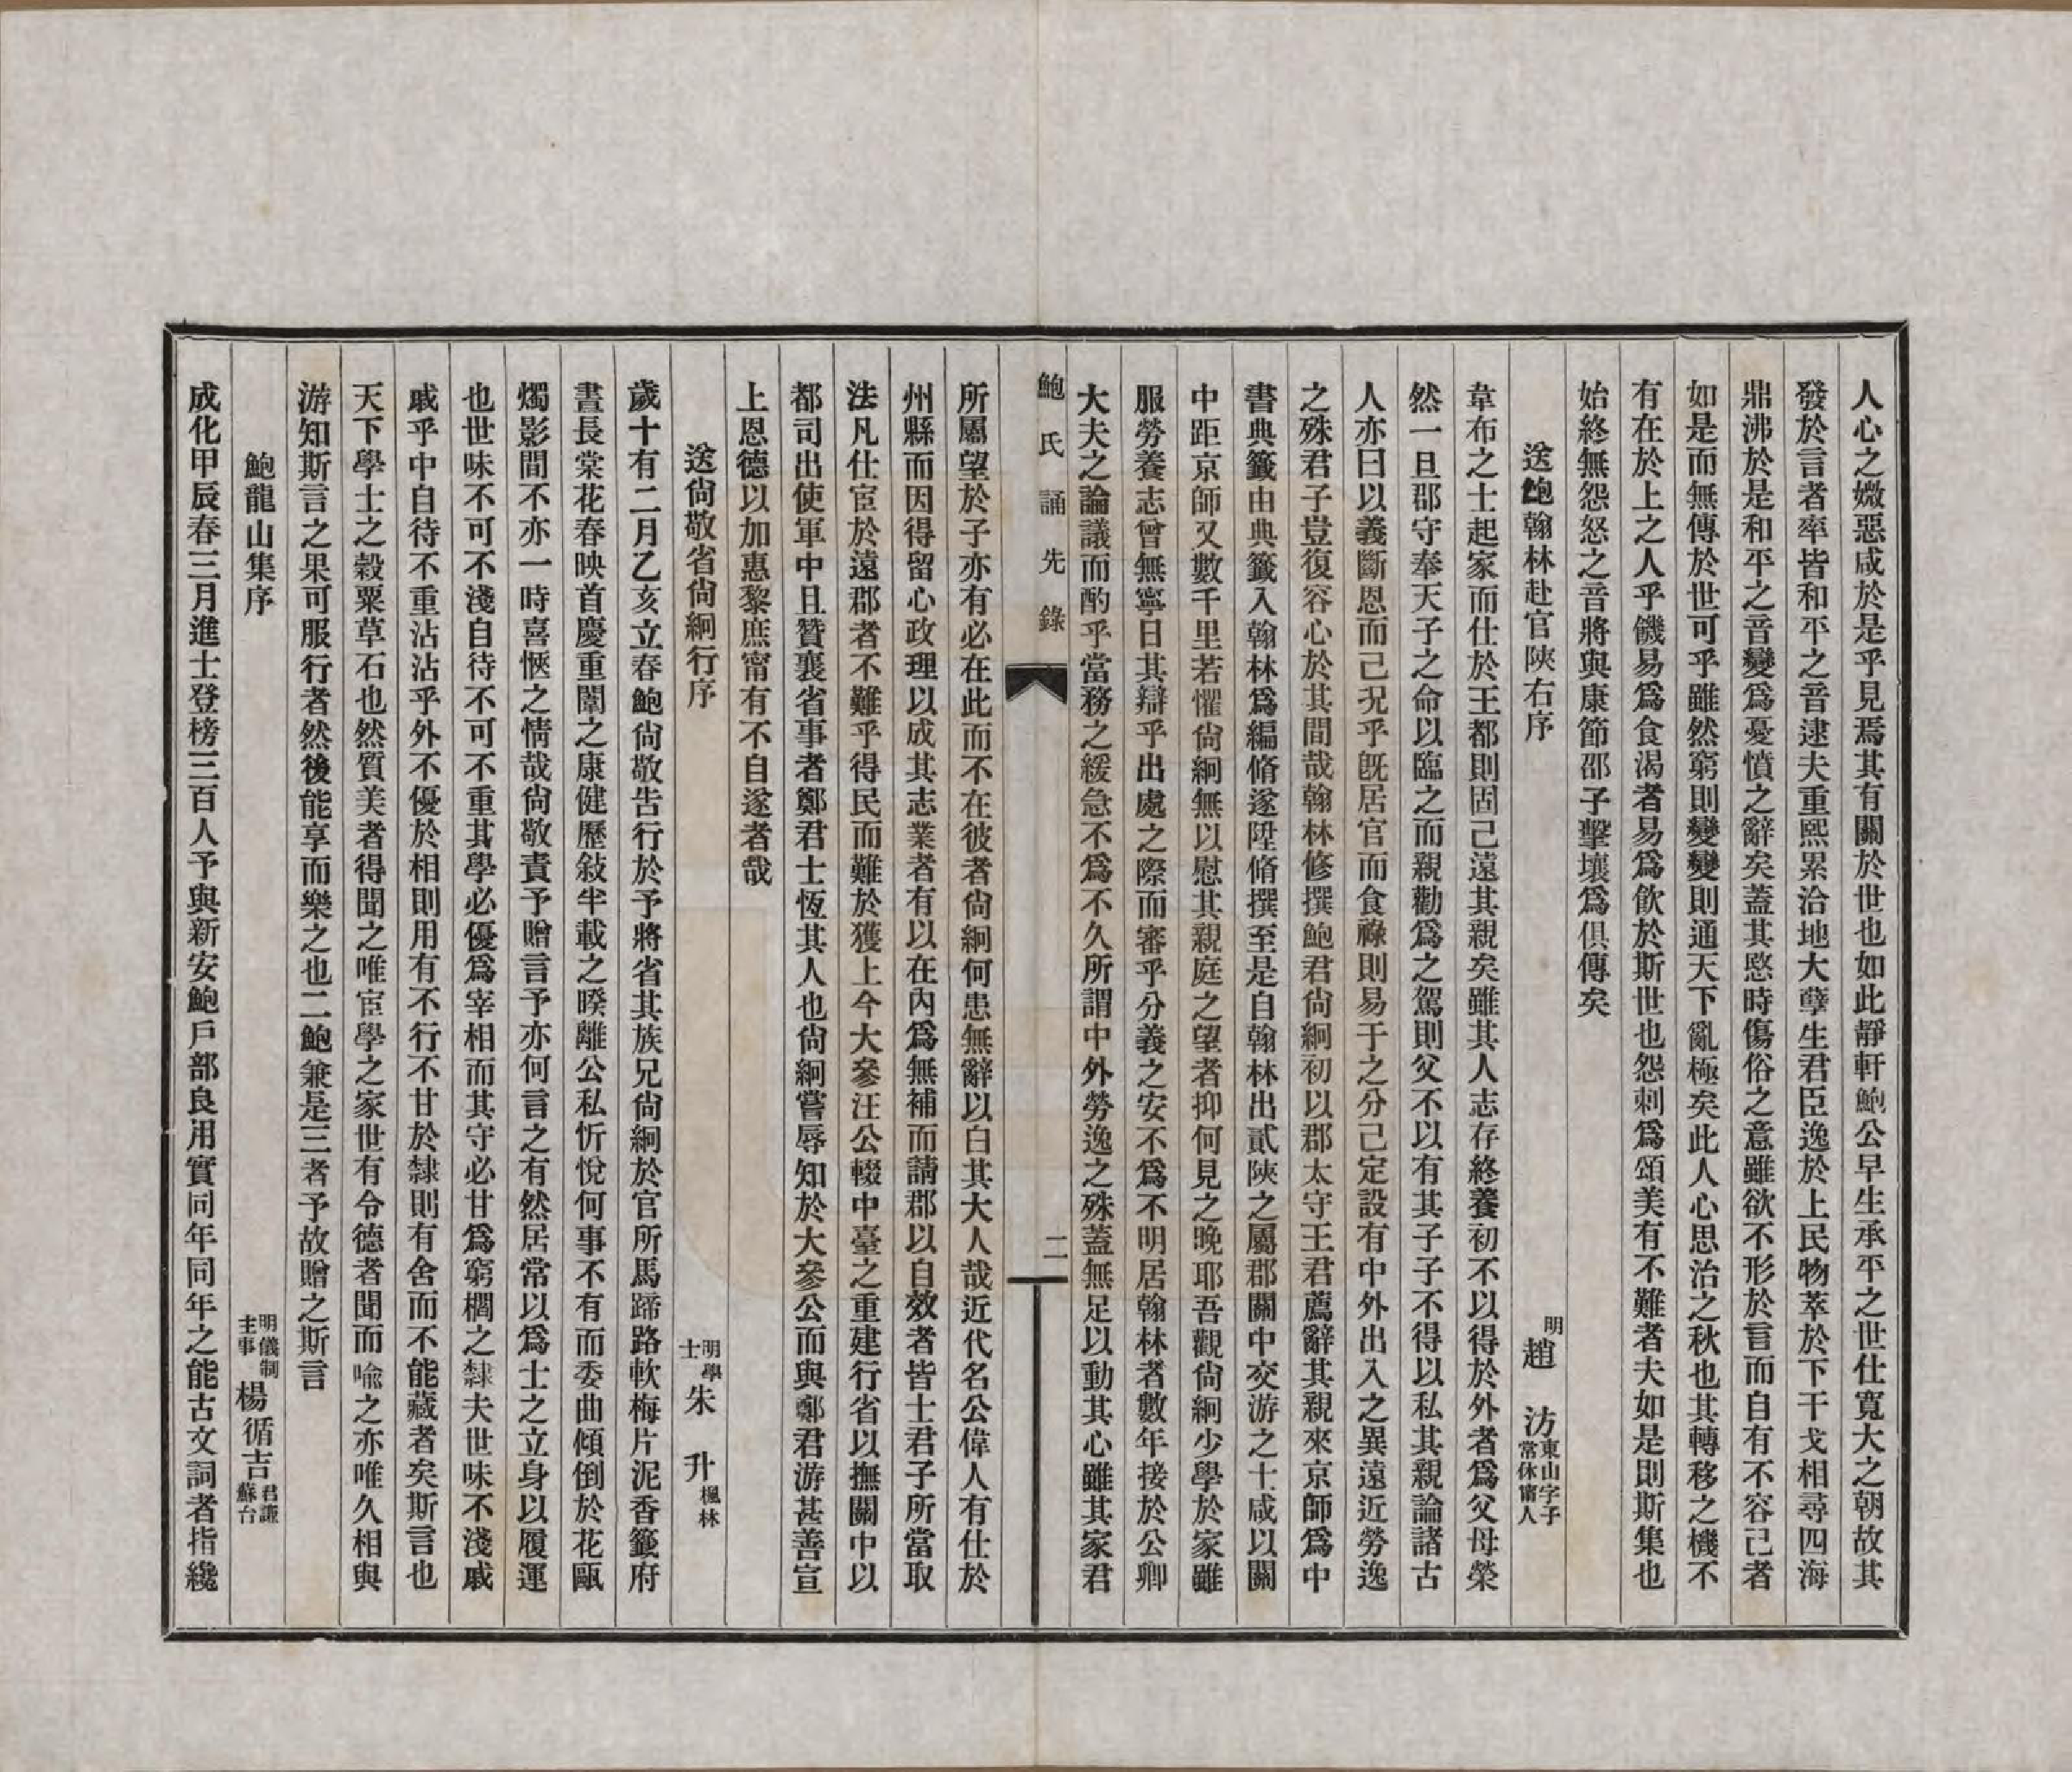 人心之媺惡咸於是乎見焉其有關於世也如此靜軒鮑公早生承平之世仕寬大之朝故其
發於言者率皆和平之音逮夫重熙累洽地大孽生君臣逸於上民物萃於下干戈相尋四海
鼎沸於是和平之音變爲憂憤之辭矣蓋其愍時傷俗之意雖欲不形於言而自有不容已者
如是而無傳於世可乎雖然窮則變變則通天下亂極矣此人心思治之秋也其轉移之機不
有在於上之人乎饑易爲食渴者易爲飮於斯世也怨刺爲頌美有不難者夫如是則斯集也
始終無怨怒之音將與康節邵子擊壤爲俱傳矣
送鮑翰林赴官陝右序
明趙汸東山字子常休甯人
韋布之士起家而仕於王都則固已遠其親矣雖其人志存終養初不以得於外者爲父母榮
然一旦郡守奉天子之命以臨之而親勸爲之駕則父不以有其子子不得以私其親論諸古
人亦曰以義斷恩而已況乎旣居官而食祿則易于之分已定設有中外出入之異遠近勞逸
之殊君子豈復容心於其間哉翰林修撰鮑君尙絅初以郡太守王君薦辭其親來京師爲中
書典籤由典籤入翰林爲編脩遂陞脩撰至是自翰林出貳陝之屬郡關中交游之士咸以關
中距京師又數千里若懼尙絅無以慰其親庭之望者抑何見之晚耶吾觀尙絅少學於家雖
服勞養志曾無寧日其辯乎出處之際而審乎分義之安不爲不明居翰林者數年接於公卿
大夫之論議而酌乎當務之緩急不爲不久所謂中外勞逸之殊蓋無足以動其心雖其家君
鮑氏誦先錄
二
所屬望於子亦有必在此而不在彼者尙絅何患無辭以白其大人哉近代名公偉人有仕於
州縣而因得留心政理以成其志業者有以在內爲無補而請郡以自效者皆士君子所當取
法凡仕宦於遠郡者不難乎得民而難於獲上今大參汪公輟中臺之重建行省以撫關中以
都司出使軍中且贊襄省事者鄭君士恆其人也尙絅嘗辱知於大參公而與鄭君游甚善宣
上恩德以加惠黎庶甯有不自遂者哉
送尙敬省尙絅行序
明學士朱升楓林
歲十有二月乙亥立春鮑尙敬告行於予將省其族兄尙絅於官所馬蹄路軟梅片泥香籤府
晝長棠花春映首慶重闈之康健歷敍半載之暌離公私忻悅何事不有而委曲傾倒於花甌
燭影間不亦一時喜愜之情哉尙敬責予贈言予亦何言之有然居常以爲士之立身以履運
也世味不可不淺自待不可不重其學必優爲宰相而其守必甘爲窮櫩之隸夫世味不淺戚
戚乎中自待不重沾沾乎外不優於相則用有不行不甘於隸則有舍而不能藏者矣斯言也
天下學士之穀粟草石也然質美者得聞之唯宦學之家世有令德者聞而喩之亦唯久相與
游知斯言之果可服行者然後能享而樂之也二鮑兼是三者予故贈之斯言
鮑龍山集序
明儀制主事楊循吉君謙蘇台
成化甲辰春三月進士登榜三百人予與新安鮑戶部良用實同年同年之能古文詞者指纔